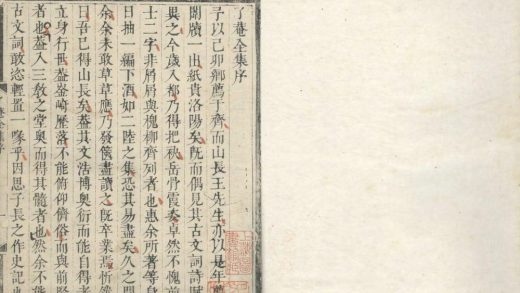 了菴全集序
予以己卯鄉薦于齊而山長王先生亦以是年薦
闈牘一出紙貴洛陽矣旣而偶見其古文詞詩賦
異之今歲入都乃得把袂岳骨霞奏卓然不愧前
士二字非屑屑與槐柳齊列者也惠余所著等身
日抽一編下酒如二陸之集恐其易盡矣久之門
余余未敢草草應乃發篋盡讀之旣卒業焉忻然
曰吾已得山長矣蓋其文浩博奧衍而能自得者
立身行己崟崎歷落不能俯仰儕俗而與前賢
者也蓋入三敎之堂奧而得其髓者也然余不能
古文詞敢恣輕置一喙乎因思子長之作史記